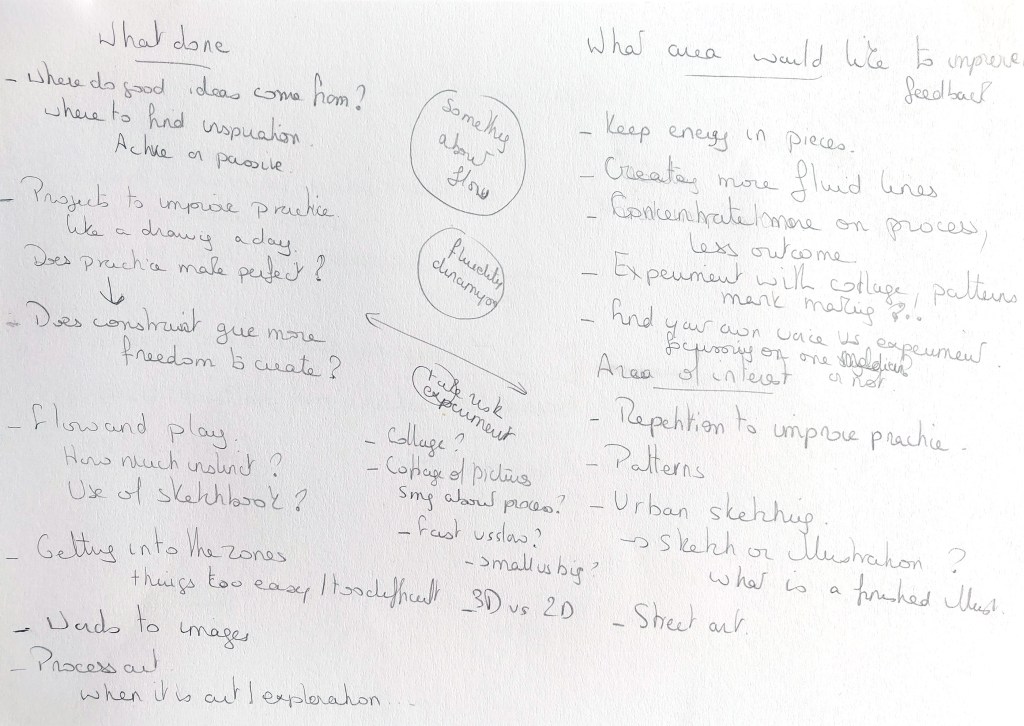 What done
- Where do good ideas come from?
where to find inspiration.
Active or passive
- Projects to improve practice.
like a drawing a day.
Does practice make perfect?
- Does constraint give more
freedom to create?
- Flow and play.
How much instinct?
Use of sketchbook?
- Getting into the zones
things too easy / too difficult
- Words to images
- Process art
when it is art / exploration...
Something
about
flow
Fluidity
take risk
experiment
- Collage?
- Collage of pictures
smg about process?
- fast vs slow?
- small vs big?
- 3D vs 2D
What area would like to improve
feedback
- Keep energy in pieces.
- Creating more fluid lines
- Concentrate more on process,
less outcome
- Experiment with collage, patterns
mark making ?..
- find your own voice vs experiment
focussing on one
or not.
Area of interest
- Repetition to improve practice.
- Patterns
- Urban sketching.
→ Sketch or illustration?
what is a finished illust.
- Street art.